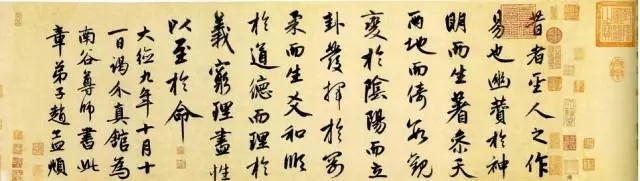 昔者聖人之作
易也幽贊於神
明而生蓍參天
兩地而倚數觀
變於陰陽而立
卦發揮於剛
柔而生爻和順
於道德而理於
義窮理盡性
以至於命
大德九年十月十
一日謁介真館為
南谷尊師書此
章弟子趙孟頫